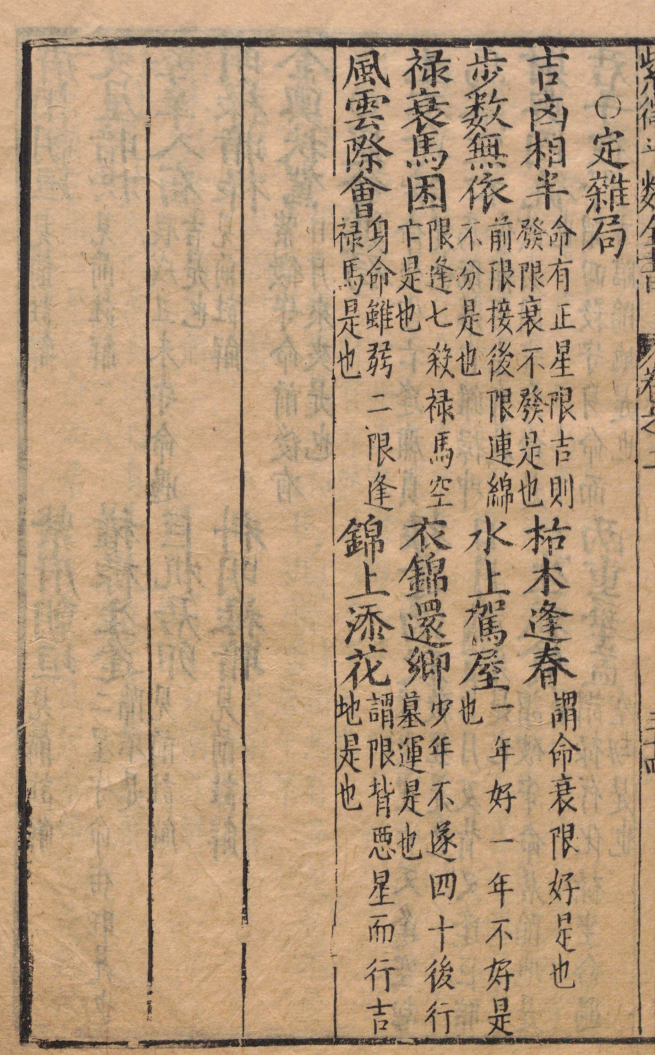 紫微斗數全書 卷之二 三十四
○定雜局
吉凶相半
命有正星限吉則
發限衰不發是也
枯木逢春
謂命衰限好是也
步數無依
前限接後限連綿
不分是也
水上駕屋
一年好一年不好是
也
禄衰馬困
限逢七殺禄馬空
亡是也
衣錦還鄉
少年不遂四十後行
墓運是也
風雲際會
身命雖弱二限逢
禄馬是也
錦上添花
謂限皆悪星而行吉
地是也